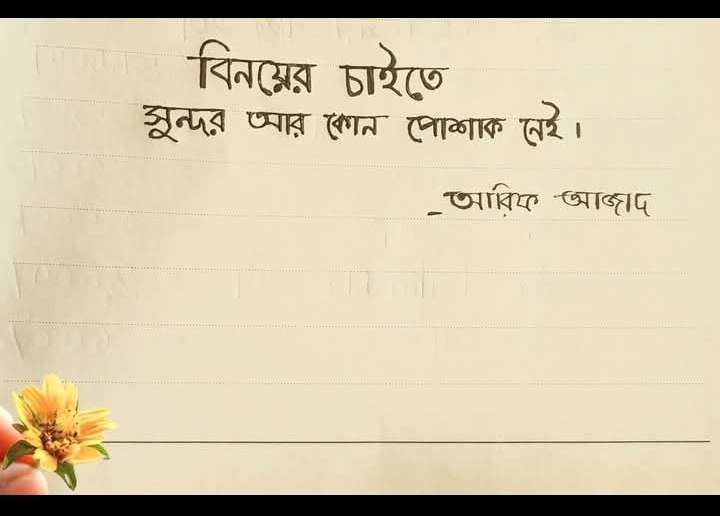 বিনয়ের চাইতে
সুন্দর আর কোন পোশাক নেই।
-আরিফ আজাদ